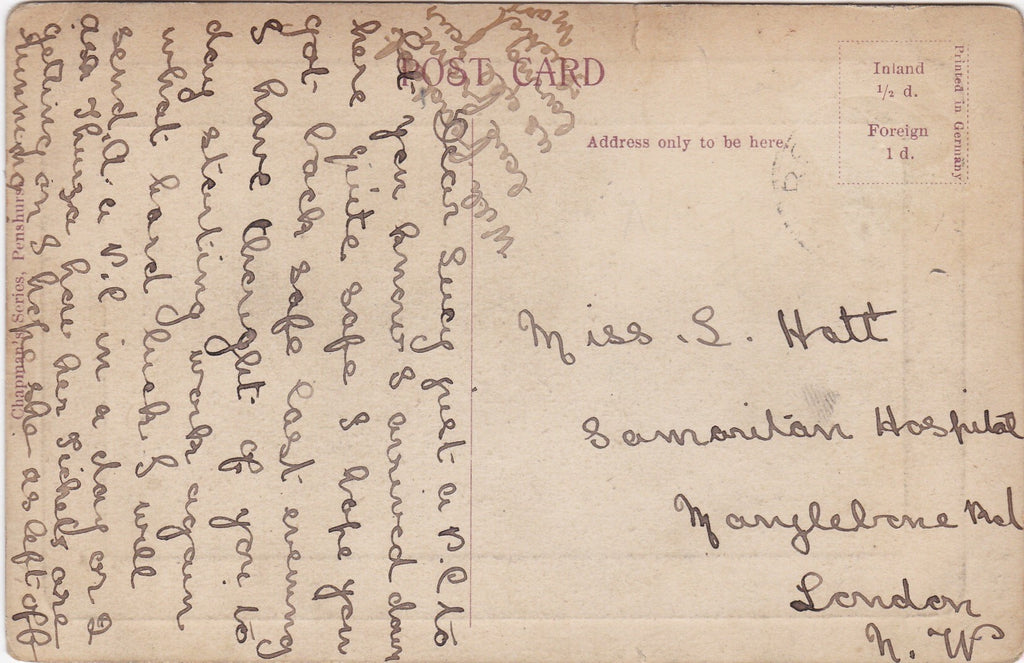 POST CARD
Address only to be here
Inland
1/2 d.
Foreign
1 d.
Printed in Germany
Chapman's Series, Penshurst
Miss. L. Hatt
Samaritan Hospital
Manglebone Rd
London
N. W
Dear Lucy just a P.C to
let you know I arrived down
here quite safe I hope you
got back safe last evening
I have thought of you to
day starting work again
what hard luck I will
send A. a P.C in a day or 2
ask Thurza how her Pickels are
getting on I hope she as left off
running
With